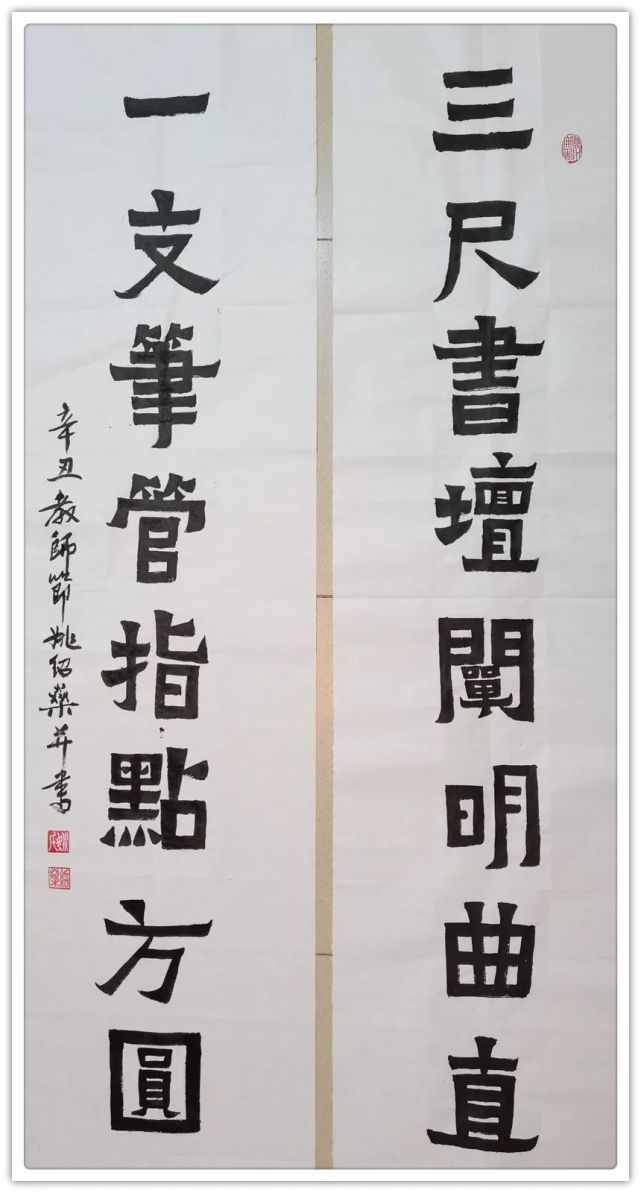 三尺書壇闡明曲直
一支筆管指點方圓
辛丑教師節姚紹藥并書